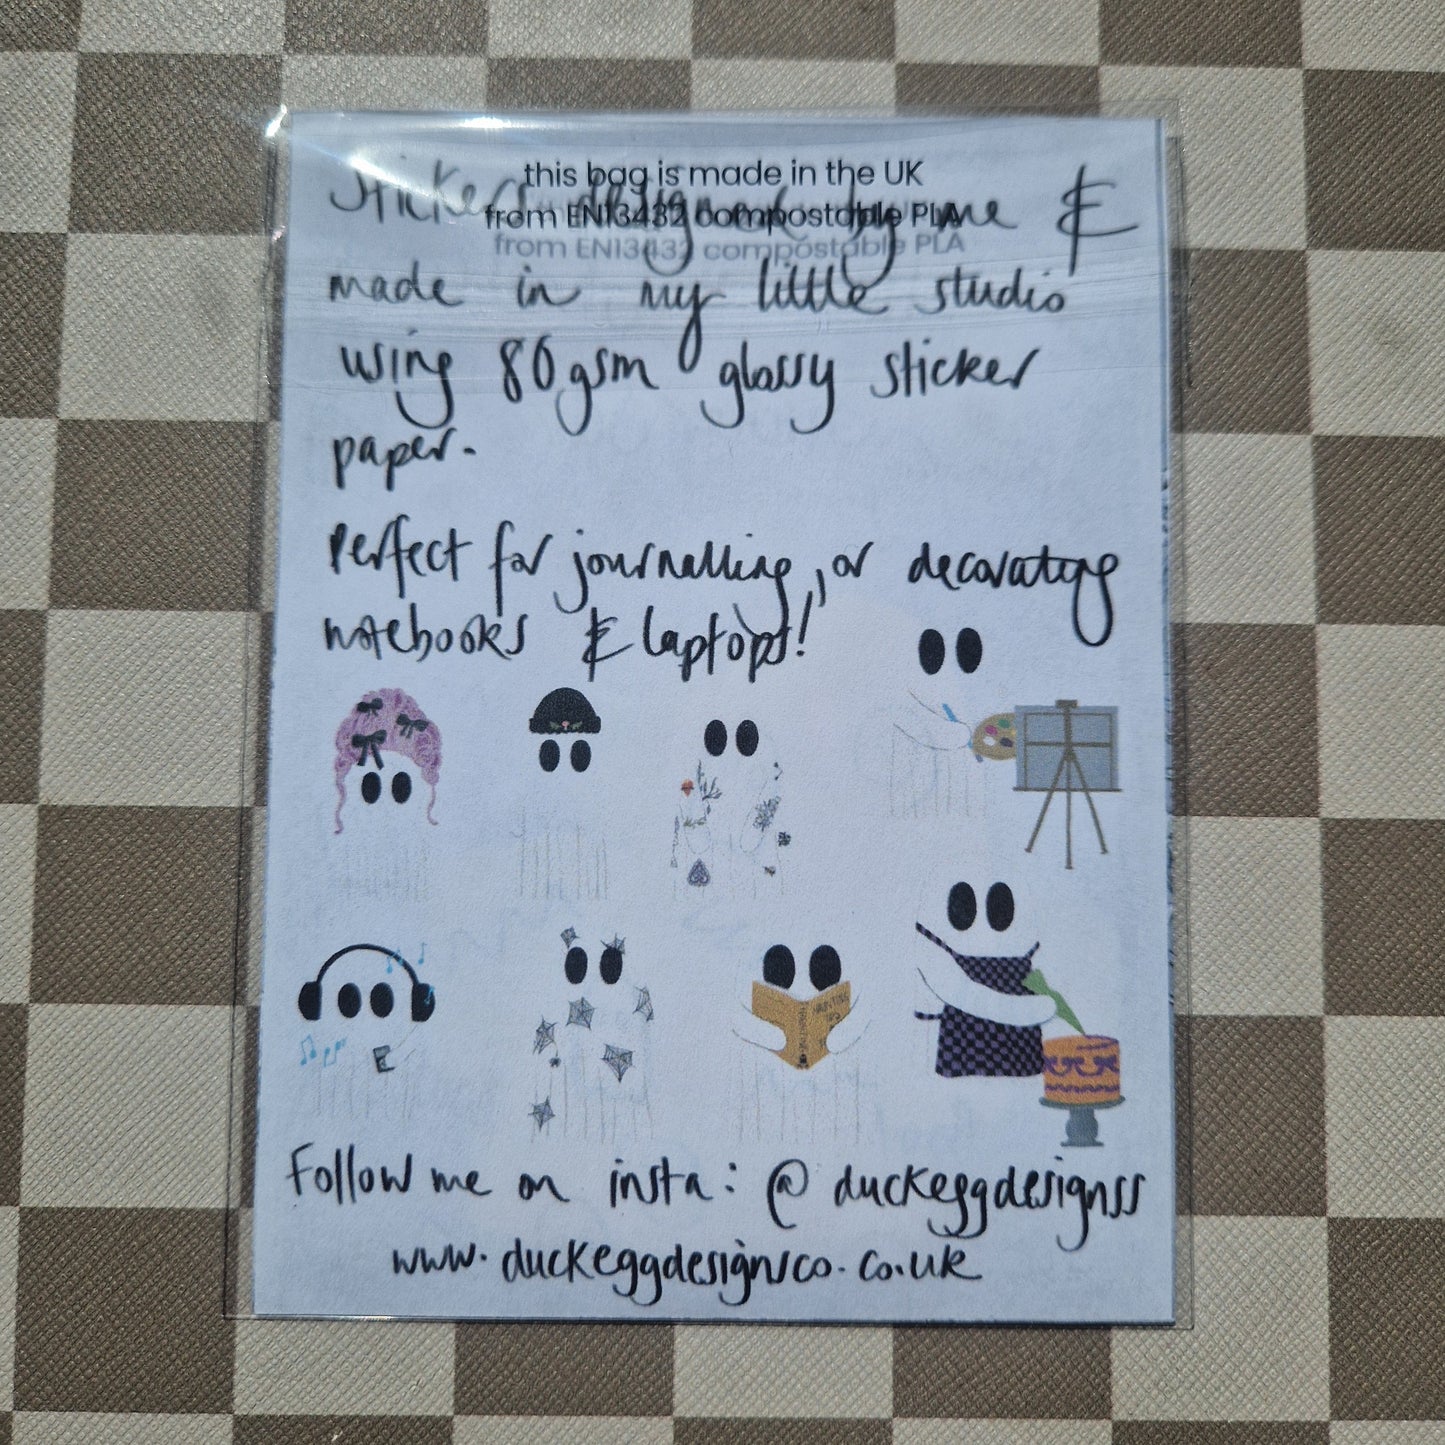 this bag is made in the UK
from EN13432 compostable PLA
Stickers designed by me &
made in my little studio
using 80gsm glossy sticker
paper.
Perfect for journalling, or decorating
notebooks & laptops!
Follow me on insta: @duckeggdesignss
www.duckeggdesignsco.co.uk